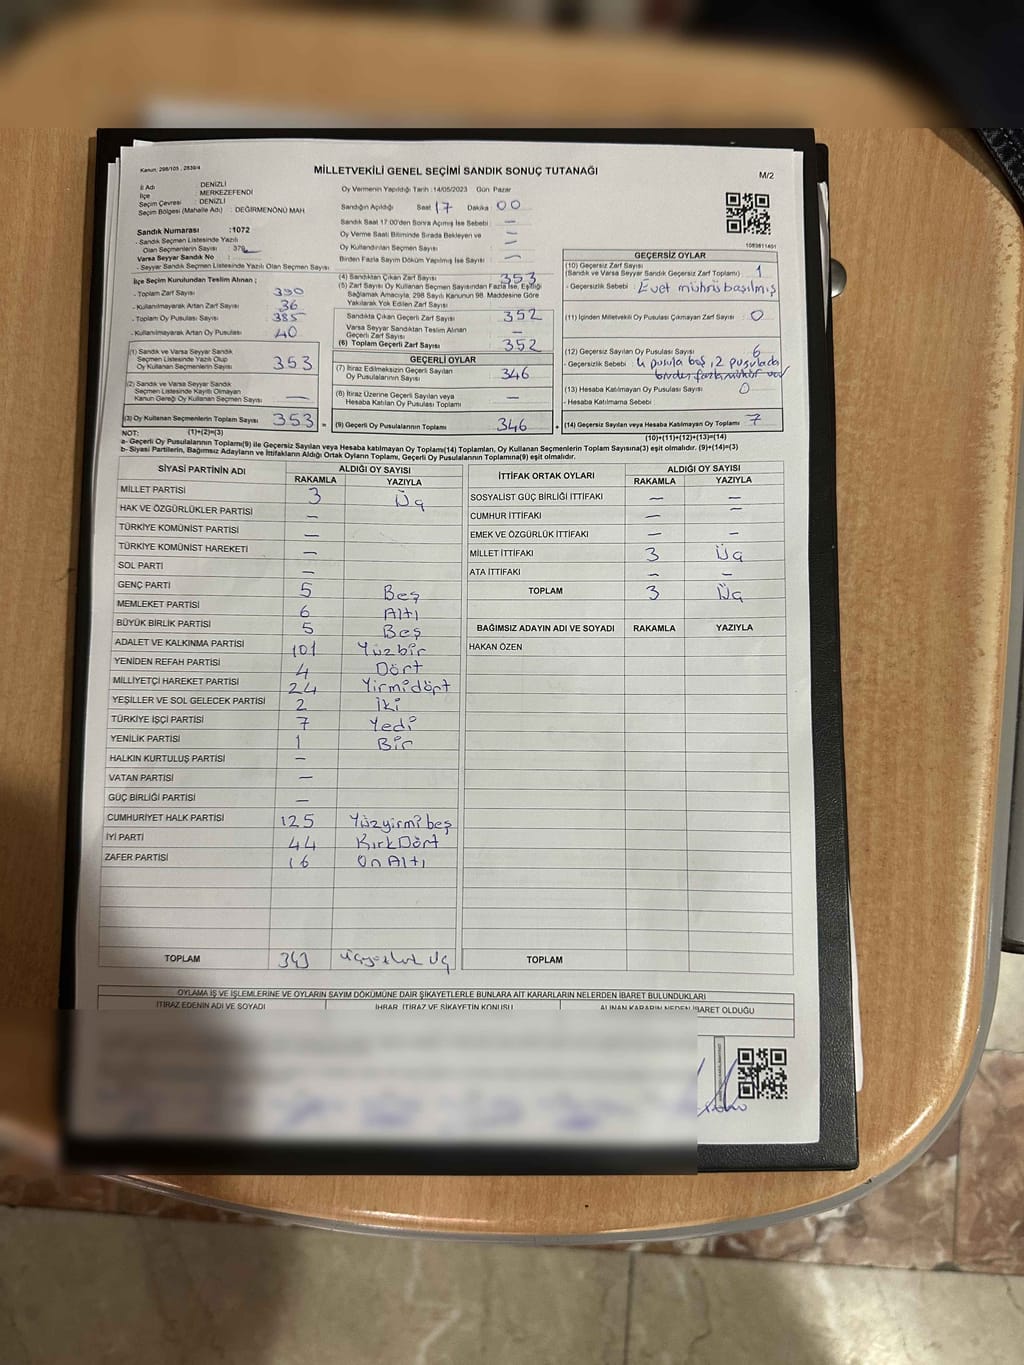 Kanun: 298/105 , 2839/4
MİLLETVEKİLİ GENEL SEÇİMİ SANDIK SONUÇ TUTANAĞI
M/2
İl Adı DENİZLİ
İlçe MERKEZEFENDİ
Seçim Çevresi : DENİZLİ
Seçim Bölgesi (Mahalle Adı) : DEĞİRMENÖNÜ MAH
Sandık Numarası :1072
- Sandık Seçmen Listesinde Yazılı
Olan Seçmenlerin Sayısı
Varsa Seyyar Sandık No :
- Seyyar Sandık Seçmen Listesinde Yazılı Olan Seçmen Sayısı
Oy Vermenin Yapıldığı Tarih : 14/05/2023 Gün Pazar
Sandığın Açıldığı Saat 17 Dakika 00
Sandık Saat 17:00'den Sonra Açılmış İse Sebebi : —
Oy Verme Saati Bitiminde Sırada Bekleyen ve —
Oy Kullandırılan Seçmen Sayısı —
Birden Fazla Sayım Döküm Yapılmış İse Sayısı : —
1083811401
İlçe Seçim Kurulundan Teslim Alınan ;
- Toplam Zarf Sayısı : 390
- Kullanılmayarak Artan Zarf Sayısı : 36
- Toplam Oy Pusulası Sayısı : 385
- Kullanılmayarak Artan Oy Pusulası : 40
(1) Sandık ve Varsa Seyyar Sandık
Seçmen Listesinde Yazılı Olup
Oy Kullanan Seçmenlerin Sayısı 353
(2) Sandık ve Varsa Seyyar Sandık
Seçmen Listesinde Kayıtlı Olmayan
Kanun Gereği Oy Kullanan Seçmen Sayısı —
(3) Oy Kullanan Seçmenlerin Toplam Sayısı 353 =
(1)+(2)=(3)
(4) Sandıktan Çıkan Zarf Sayısı 353
(5) Zarf Sayısı Oy Kullanan Seçmen Sayısından Fazla İse, Eşitliği
Sağlamak Amacıyla, 298 Sayılı Kanunun 98. Maddesine Göre
Yakılarak Yok Edilen Zarf Sayısı —
Sandıkta Çıkan Geçerli Zarf Sayısı 352
Varsa Seyyar Sandıktan Teslim Alınan
Geçerli Zarf Sayısı —
(6) Toplam Geçerli Zarf Sayısı 352
GEÇERLİ OYLAR
(7) İtiraz Edilmeksizin Geçerli Sayılan
Oy Pusulalarının Sayısı 346
(8) İtiraz Üzerine Geçerli Sayılan veya
Hesaba Katılan Oy Pusulası Toplamı —
(9) Geçerli Oy Pusulalarının Toplamı 346 +
GEÇERSİZ OYLAR
(10) Geçersiz Zarf Sayısı
(Sandık ve Varsa Seyyar Sandık Geçersiz Zarf Toplamı) : 1
- Geçersizlik Sebebi : Evet mührü basılmış
(11) İçinden Milletvekili Oy Pusulası Çıkmayan Zarf Sayısı : 0
(12) Geçersiz Sayılan Oy Pusulası Sayısı 6
- Geçersizlik Sebebi : 4 pusula boş, 2 pusulada
birden fazla mühür var
(13) Hesaba Katılmayan Oy Pusulası Sayısı : 0
- Hesaba Katılmama Sebebi :
(14) Geçersiz Sayılan veya Hesaba Katılmayan Oy Toplamı 7
(10)+(11)+(12)+(13)=(14)
NOT:
a- Geçerli Oy Pusulalarının Toplamı(9) ile Geçersiz Sayılan veya Hesaba katılmayan Oy Toplamı(14) Toplamları, Oy Kullanan Seçmenlerin Toplam Sayısına(3) eşit olmalıdır. (9)+(14)=(3)
b- Siyasi Partilerin, Bağımsız Adayların ve İttifakların Aldığı Ortak Oyların Toplamı, Geçerli Oy Pusulalarının Toplamına(9) eşit olmalıdır.
SİYASİ PARTİNİN ADI ALDIĞI OY SAYISI
RAKAMLA YAZIYLA
MİLLET PARTİSİ 3 Üç
HAK VE ÖZGÜRLÜKLER PARTİSİ —
TÜRKİYE KOMÜNİST PARTİSİ —
TÜRKİYE KOMÜNİST HAREKETİ —
SOL PARTİ —
GENÇ PARTİ 5 Beş
MEMLEKET PARTİSİ 6 Altı
BÜYÜK BİRLİK PARTİSİ 5 Beş
ADALET VE KALKINMA PARTİSİ 101 Yüzbir
YENİDEN REFAH PARTİSİ 4 Dört
MİLLİYETÇİ HAREKET PARTİSİ 24 Yirmidört
YEŞİLLER VE SOL GELECEK PARTİSİ 2 İki
TÜRKİYE İŞÇİ PARTİSİ 7 Yedi
YENİLİK PARTİSİ 1 Bir
HALKIN KURTULUŞ PARTİSİ —
VATAN PARTİSİ —
GÜÇ BİRLİĞİ PARTİSİ —
CUMHURİYET HALK PARTİSİ 125 Yüzyirmibeş
İYİ PARTİ 44 KırkDört
ZAFER PARTİSİ 16 On Altı
TOPLAM 343 üçyüzkırk üç
İTTİFAK ORTAK OYLARI ALDIĞI OY SAYISI
RAKAMLA YAZIYLA
SOSYALİST GÜÇ BİRLİĞİ İTTİFAKI — —
CUMHUR İTTİFAKI — —
EMEK VE ÖZGÜRLÜK İTTİFAKI — —
MİLLET İTTİFAKI 3 Üç
ATA İTTİFAKI — —
TOPLAM 3 Üç
BAĞIMSIZ ADAYIN ADI VE SOYADI RAKAMLA YAZIYLA
HAKAN ÖZEN
TOPLAM
OYLAMA İŞ VE İŞLEMLERİNE VE OYLARIN SAYIM DÖKÜMÜNE DAİR ŞİKAYETLERLE BUNLARA AİT KARARLARIN NELERDEN İBARET BULUNDUKLARI
İTİRAZ EDENİN ADI VE SOYADI İHBAR, İTİRAZ VE ŞİKAYETİN KONUSU ALINAN KARARIN NEDEN İBARET OLDUĞU